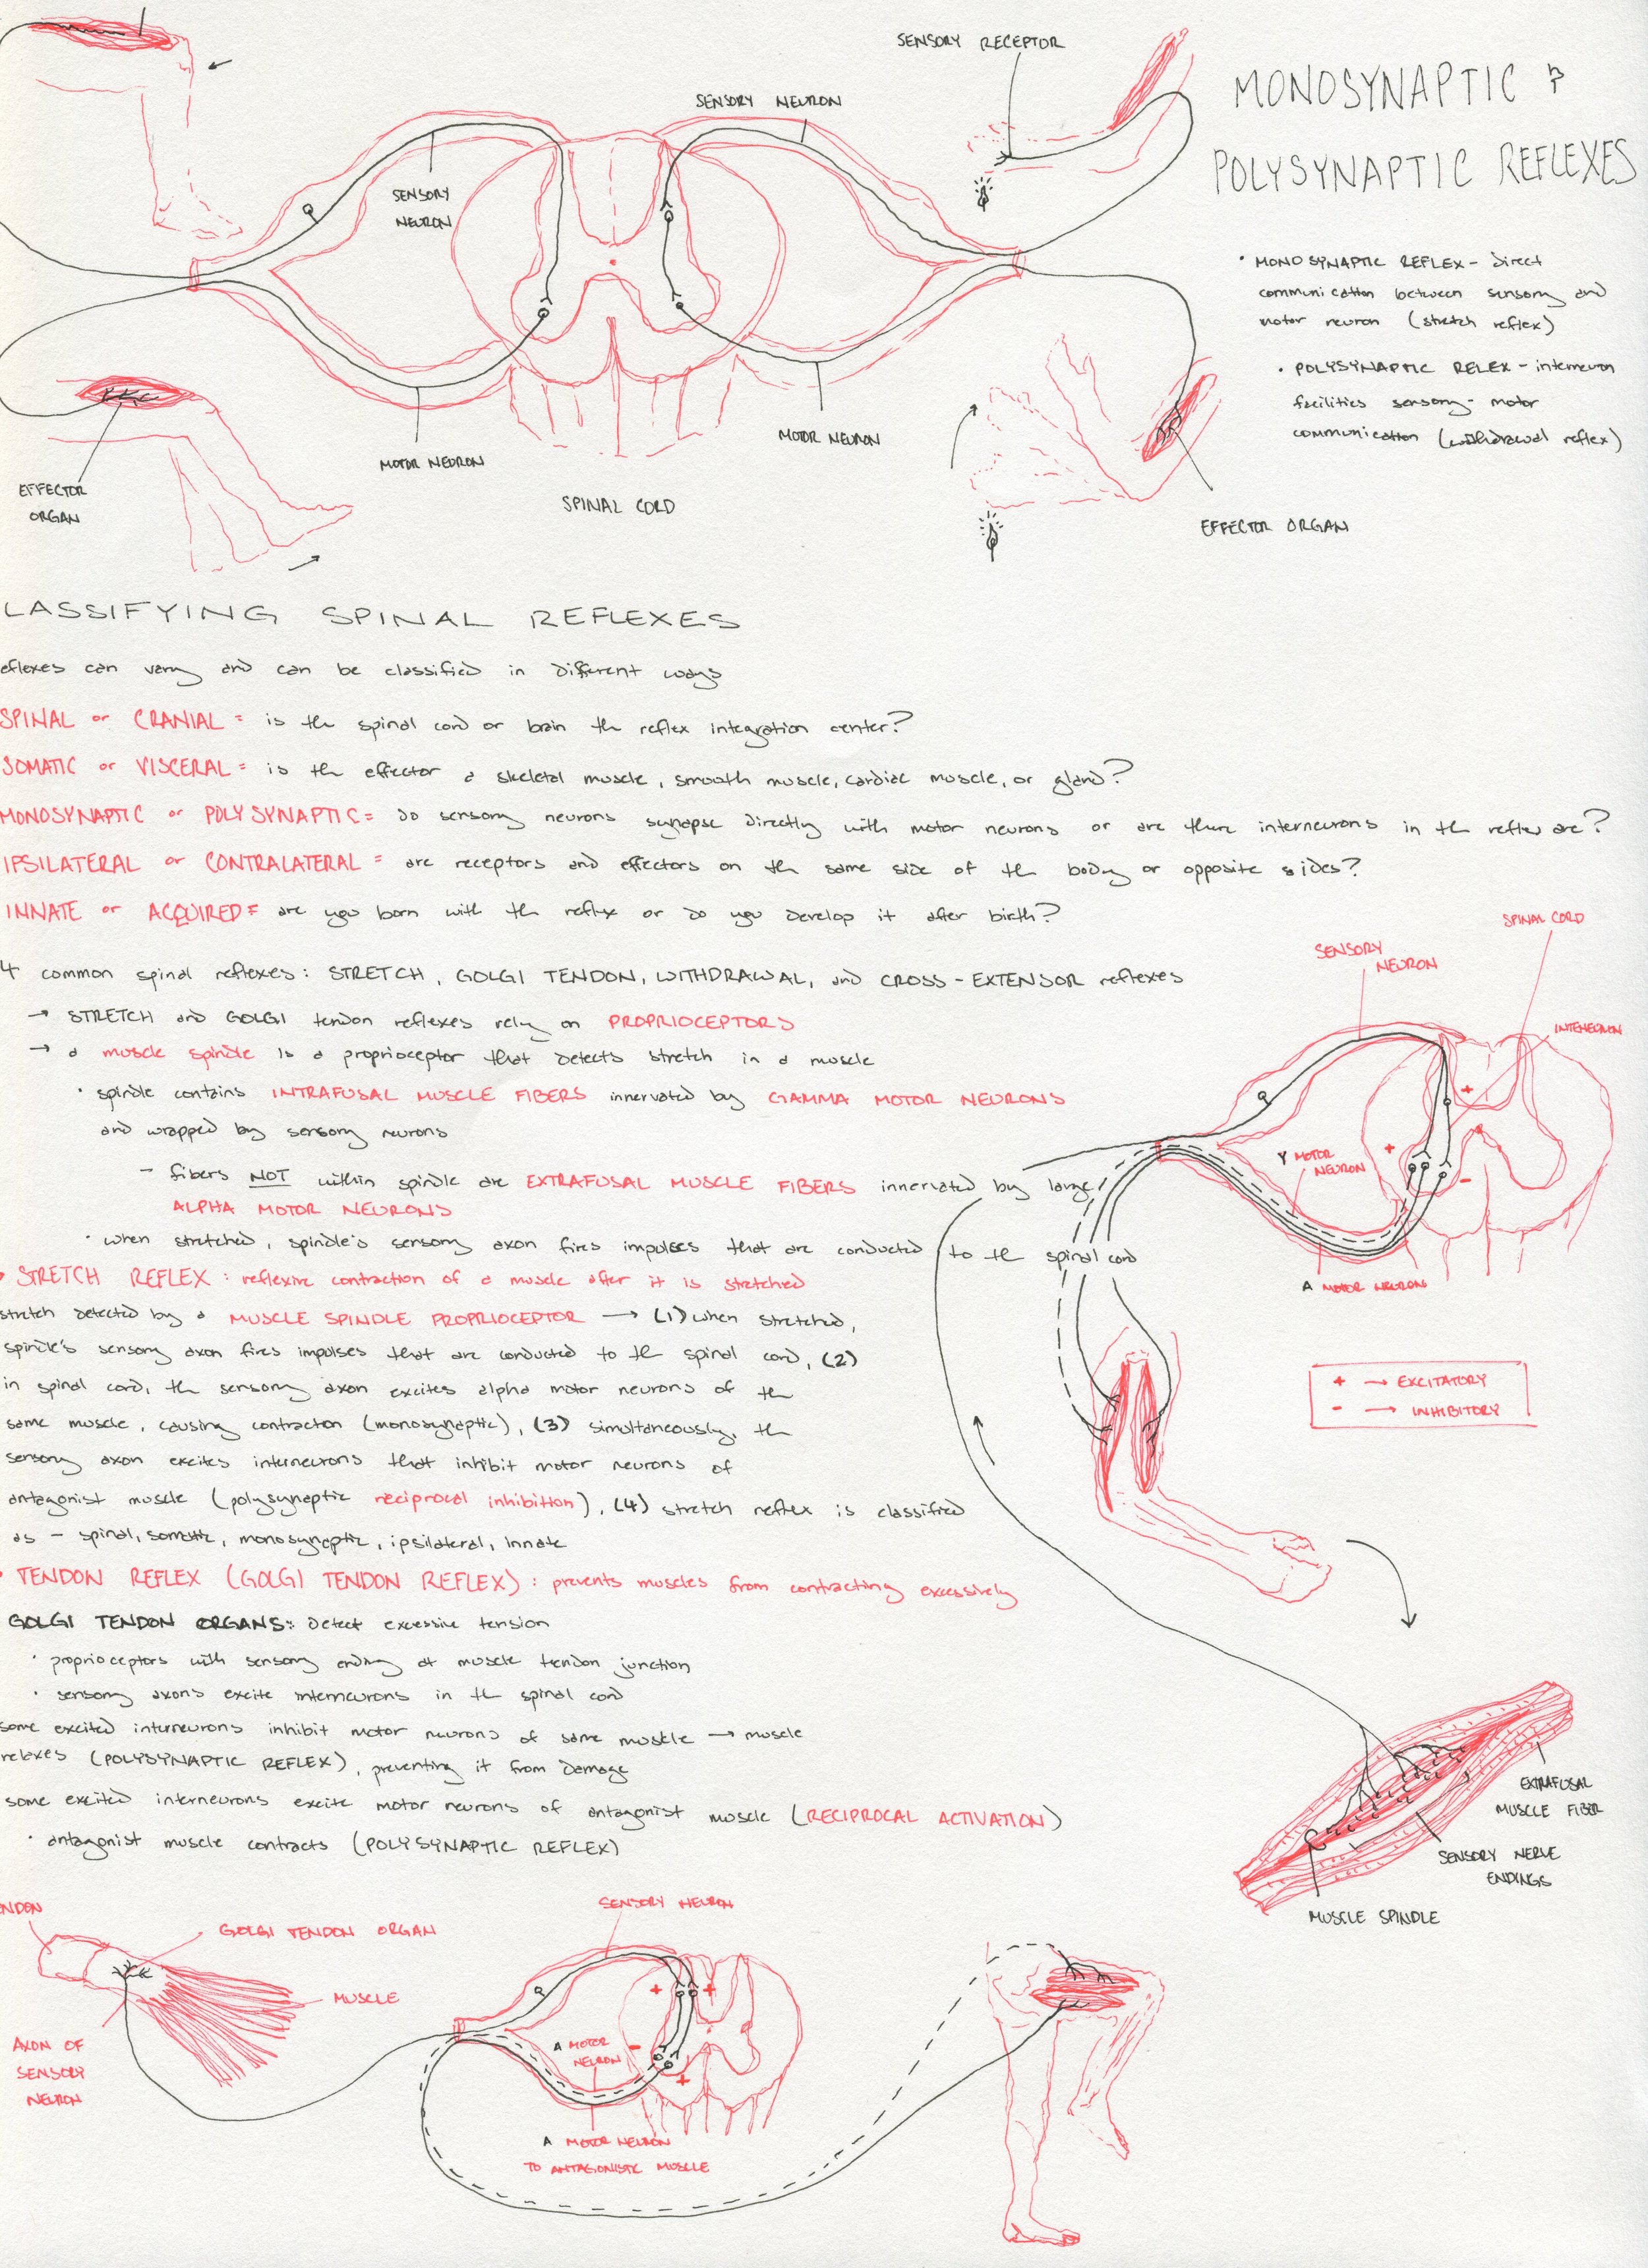 SENSORY RECEPTOR
SENSORY NEURON
SENSORY
NEURON
MONOSYNAPTIC &
POLYSYNAPTIC REFLEXES
• MONOSYNAPTIC REFLEX - direct
communication between sensory and
motor neuron (stretch reflex)
• POLYSYNAPTIC RELEX - interneuron
facilities sensory-motor
communication (withdrawal reflex)
MOTOR NEURON
MOTOR NEURON
EFFECTOR
ORGAN
SPINAL CORD
EFFECTOR ORGAN
LASSIFYING SPINAL REFLEXES
eflexes can vary and can be classified in different ways
SPINAL or CRANIAL = is the spinal cord or brain the reflex integration center?
SOMATIC or VISCERAL = is the effector a skeletal muscle, smooth muscle, cardiac muscle, or gland?
MONOSYNAPTIC or POLYSYNAPTIC = do sensory neurons synapse directly with motor neurons or are there interneurons in the reflex arc?
IPSILATERAL or CONTRALATERAL = are receptors and effectors on the same side of the body or opposite sides?
INNATE or ACQUIRED = are you born with the reflex or do you develop it after birth?
4 common spinal reflexes: STRETCH, GOLGI TENDON, WITHDRAWAL, and CROSS-EXTENSOR reflexes
→ STRETCH and GOLGI tendon reflexes rely on PROPRIOCEPTORS
→ a muscle spindle is a proprioceptor that detects stretch in a muscle
• spindle contains INTRAFUSAL MUSCLE FIBERS innervated by GAMMA MOTOR NEURONS
and wrapped by sensory neurons
- fibers NOT within spindle are EXTRAFUSAL MUSCLE FIBERS innervated by large
ALPHA MOTOR NEURONS
• when stretched, spindle's sensory axon fires impulses that are conducted to the spinal cord
• STRETCH REFLEX: reflexive contraction of a muscle after it is stretched
stretch detected by a MUSCLE SPINDLE PROPRIOCEPTOR → (1) when stretched,
spindle's sensory axon fires impulses that are conducted to the spinal cord, (2)
in spinal cord, the sensory axon excites alpha motor neurons of the
same muscle, causing contraction (monosynaptic), (3) simultaneously, the
sensory axon excites interneurons that inhibit motor neurons of
antagonist muscle (polysynaptic reciprocal inhibition), (4) stretch reflex is classified
as - spinal, somatic, monosynaptic, ipsilateral, innate
• TENDON REFLEX (GOLGI TENDON REFLEX): prevents muscles from contracting excessively
GOLGI TENDON ORGANS: detect excessive tension
• proprioceptors with sensory ending at muscle tendon junction
• sensory axons excite interneurons in the spinal cord
some excited interneurons inhibit motor neurons of same muscle → muscle
relaxes (POLYSYNAPTIC REFLEX), preventing it from damage
some excited interneurons excite motor neurons of antagonist muscle (RECIPROCAL ACTIVATION)
• antagonist muscle contracts (POLYSYNAPTIC REFLEX)
SPINAL CORD
SENSORY
NEURON
INTENEURON
+
+
γ MOTOR
NEURON
-
A MOTOR NEURON
+ → EXCITATORY
- → INHIBITORY
EXTRAFUSAL
MUSCLE FIBER
SENSORY NERVE
ENDINGS
MUSCLE SPINDLE
ENDON
GOLGI TENDON ORGAN
MUSCLE
AXON OF
SENSORY
NEURON
SENSORY NEURON
+ +
A MOTOR
NEURON
-
+
A MOTOR NEURON
TO ANTAGONISTIC MUSCLE